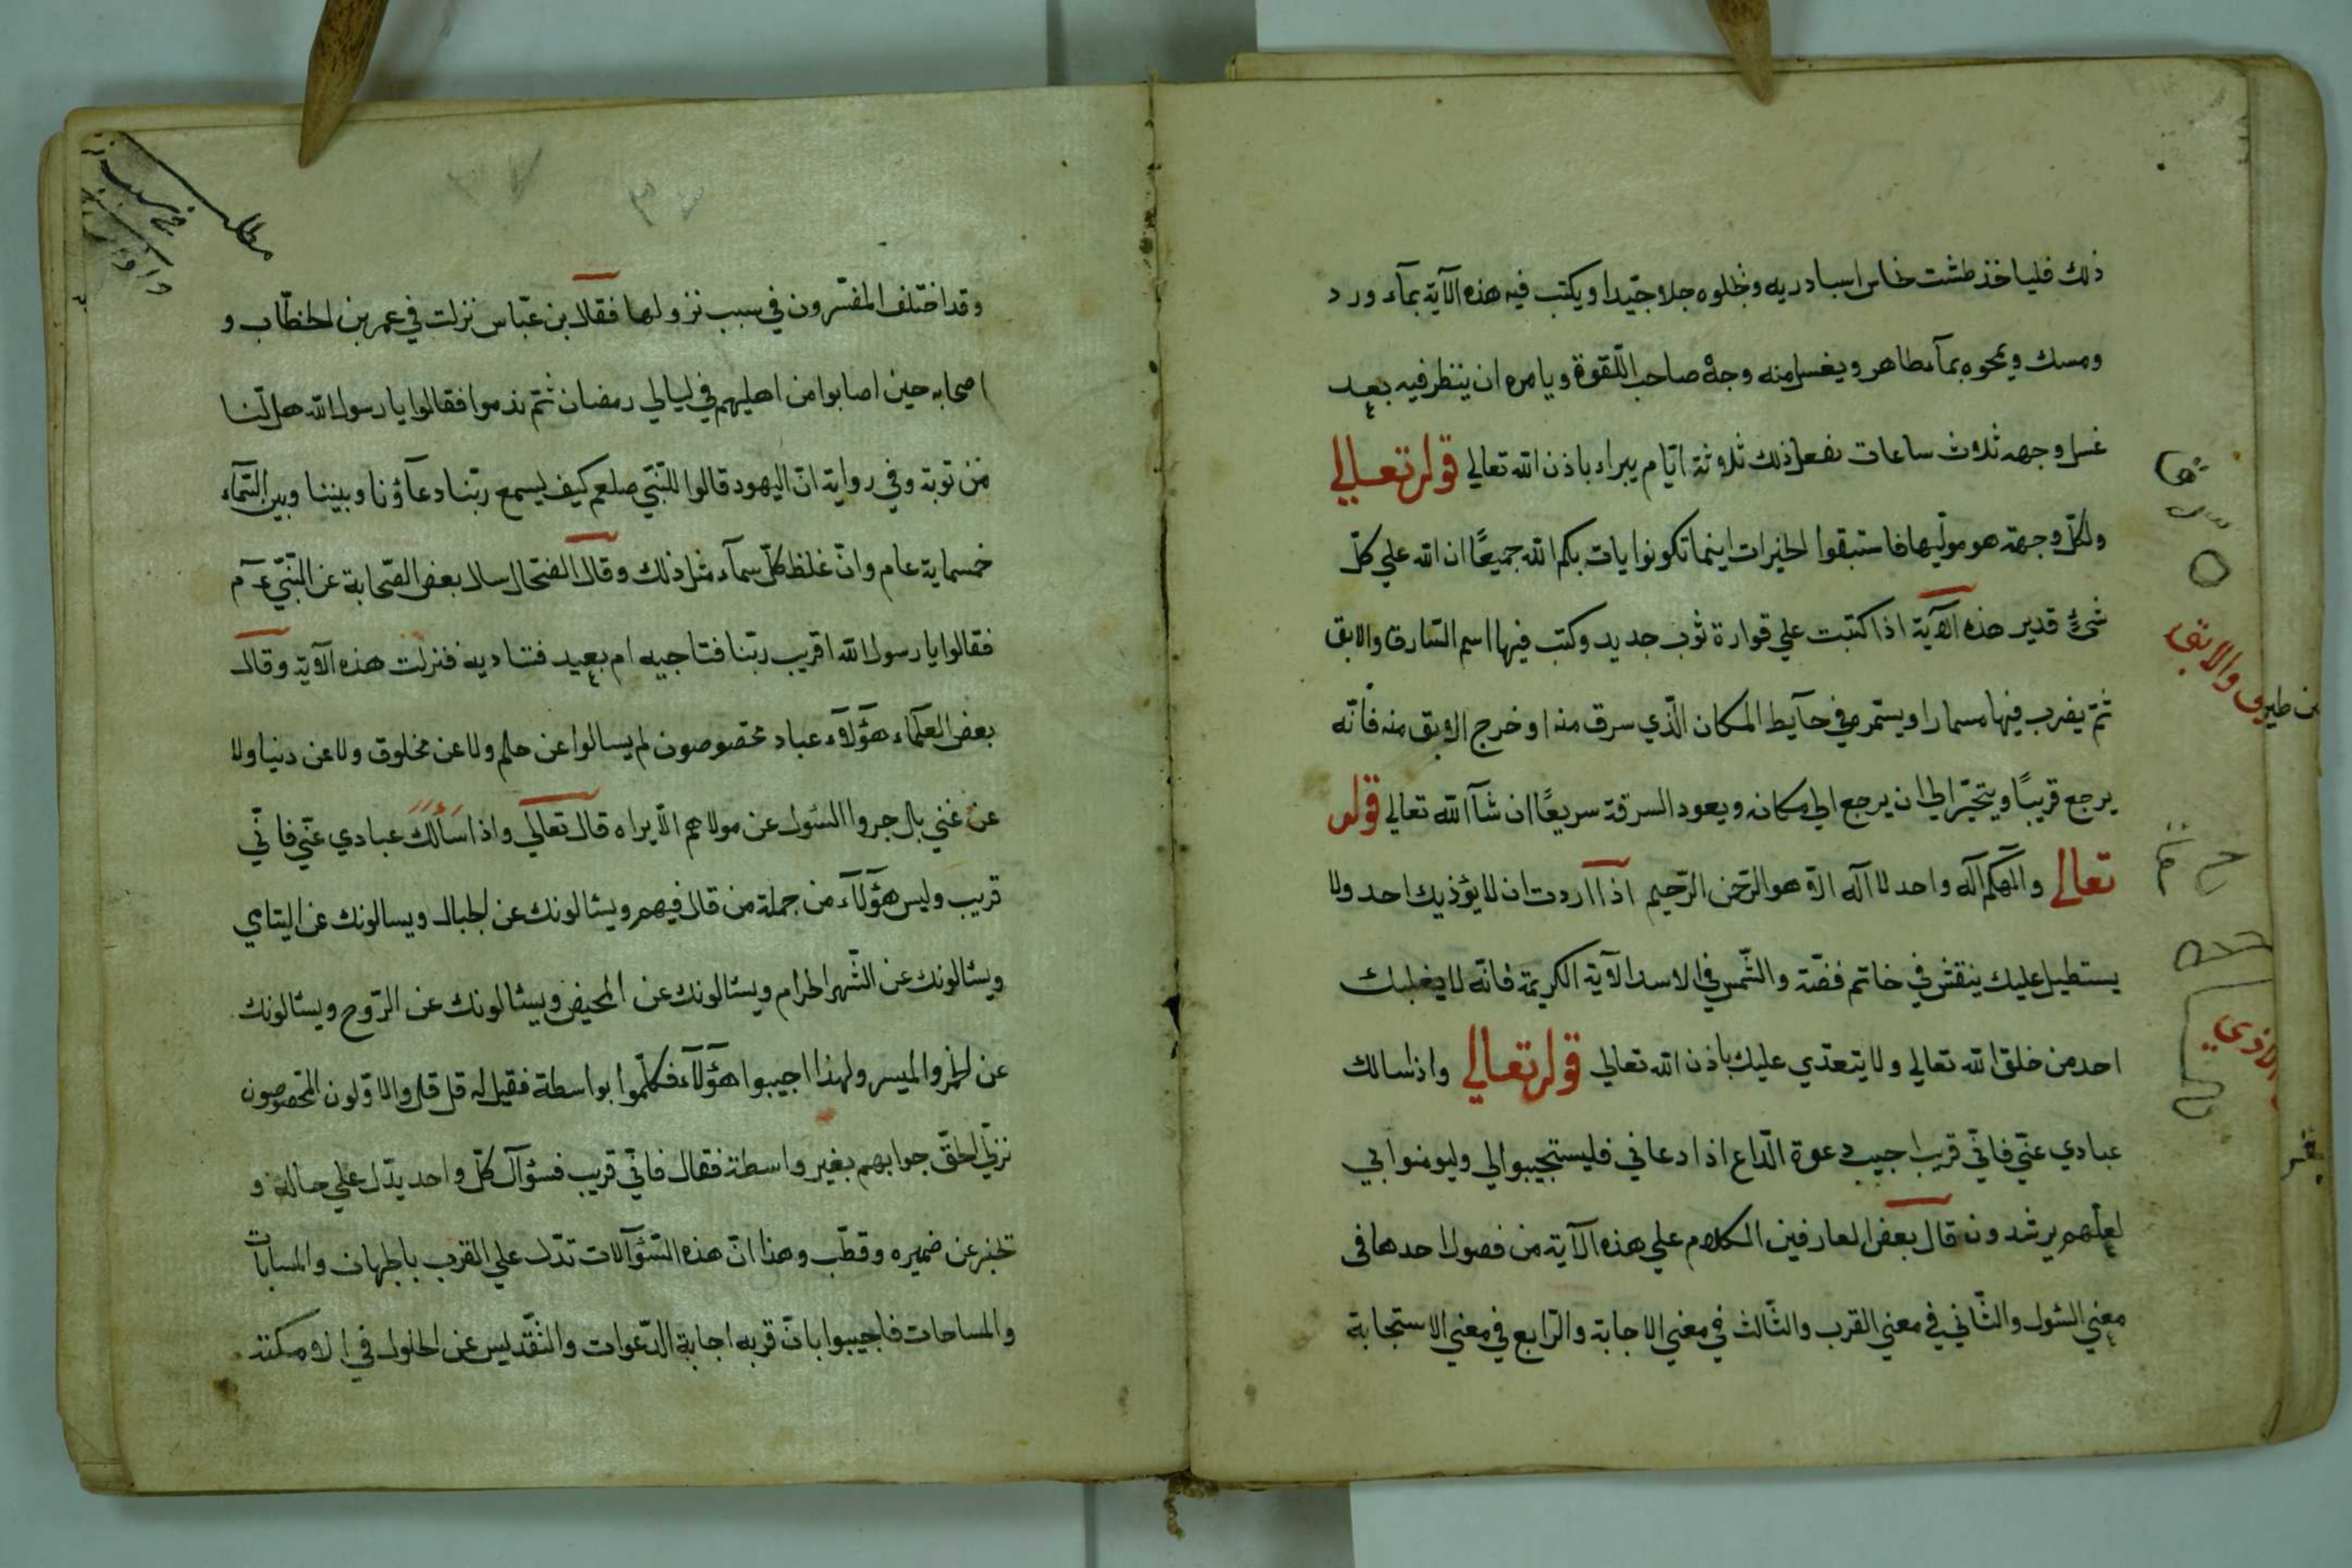 ذلك فلياخذ طشت نحاس اسبادريه ويجلوه جلاء جيّدا ويكتب فيه هذه الآية بمآء ورد
ومسك ويمحوه بمآء طاهر ويغسل منه وجه صاحب اللّقوة ويامره ان ينظر فيه بعد
غسل وجهه ثلاث ساعات يفعل ذلك ثلاثة ايّام يبراء باذن الله تعالي قوله تعالي
ولكلّ وجهة هو مولّيها فاستبقوا الخيرات اينما تكونوا يات بكم الله جميعًا ان الله علي كلّ
شئ قدير هذه الآية اذا كتبت علي قوارة ثوب جديد وكتب فيها اسم السّارق والابق
ثمّ يضرب فيها مسمارا ويستمر في حآيط المكان الّذي سرق منه او خرج الابق منه فانّه
يرجع قريبًا ويتحيّر الي ان يرجع الي مكانه ويعود السرقة سريعًا ان شآالله تعالي قوله
تعالي والٓهكم آله واحد لا آله الّا هو الرّحمن الرّحيم اذا آردت ان لا يؤذيك احد ولا
يستطيل عليك ينقش في خاتم فضّة والشّمس في الاسد الآية الكريمة فانّه لا يغلبك
احد من خلق الله تعالي ولا يتعدّي عليك باذن الله تعالي قوله تعالي واذا سالك
عبادي عنّي فانّي قريب اجيب دعوة الدّاع اذا دعاني فليستجيبوا لي وليومنوا بي
لعلّهم يرشدون قال بعض العارفين الكلام علي هذه الآية من فصول احدها في
معني السّول والثّاني في معني القرب والثّالث في معني الاجابة والرّابع في معني الاستجابة
والابق
الاذي
مطلب
وقد اختلف المفسّرون في سبب نزولها فقال ابن عبّاس نزلت في عمر بن الخطّاب و
اصحابه حين اصابوا من اهليهم في ليالي رمضان ثمّ ندموا فقالوا يا رسول الله هل لنا
من توبة وفي رواية انّ اليهود قالوا للنّبيّ صلعم كيف يسمع ربّنا دعآؤنا وبيننا وبين السّمآء
خمسماية عام وانّ غلظ كلّ سمآء مثل ذلك وقال الضحاك سال بعض الصّحابة عن النّبيّ عم
فقالوا يا رسول الله اقريب ربّنا فتناجيه ام بعيد فنناديه فنزلت هذه الآية وقال
بعض العلمآء هؤلآء عباد مخصوصون لم يسالوا عن حلم ولا عن مخلوق ولا عن دنيا ولا
عن غني بال جروا السّول عن مولاهم الّا يراه قال تعالي واذا سألك عبادي عنّي فانّي
قريب وليس هؤلآء من جملة من قال فيهم ويسئالونك عن الجبال ويسالونك عن اليتامي
ويسئالونك عن الشّهر الحرام ويسئالونك عن المحيض ويسئالونك عن الرّوح ويسئالونك
عن الخمر والميسر ولهذا اجيبوا هؤلآء فكلّموا بواسطة فقيل له قل قل والاوّلون المخصوصون
نزّل الحقّ جوابهم بغير واسطة فقال فانّي قريب فسؤآل كلّ واحد يدّل علي حاله و
تخبر عن ضميره وقطّب وهذا انّ هذه السّؤآلات تدّل علي القرب بالجهات والمسابات
والمساحات فاجيبوا بانّ قربه اجابة الدّعوات والتّقديس عن الحلول في الامكنة